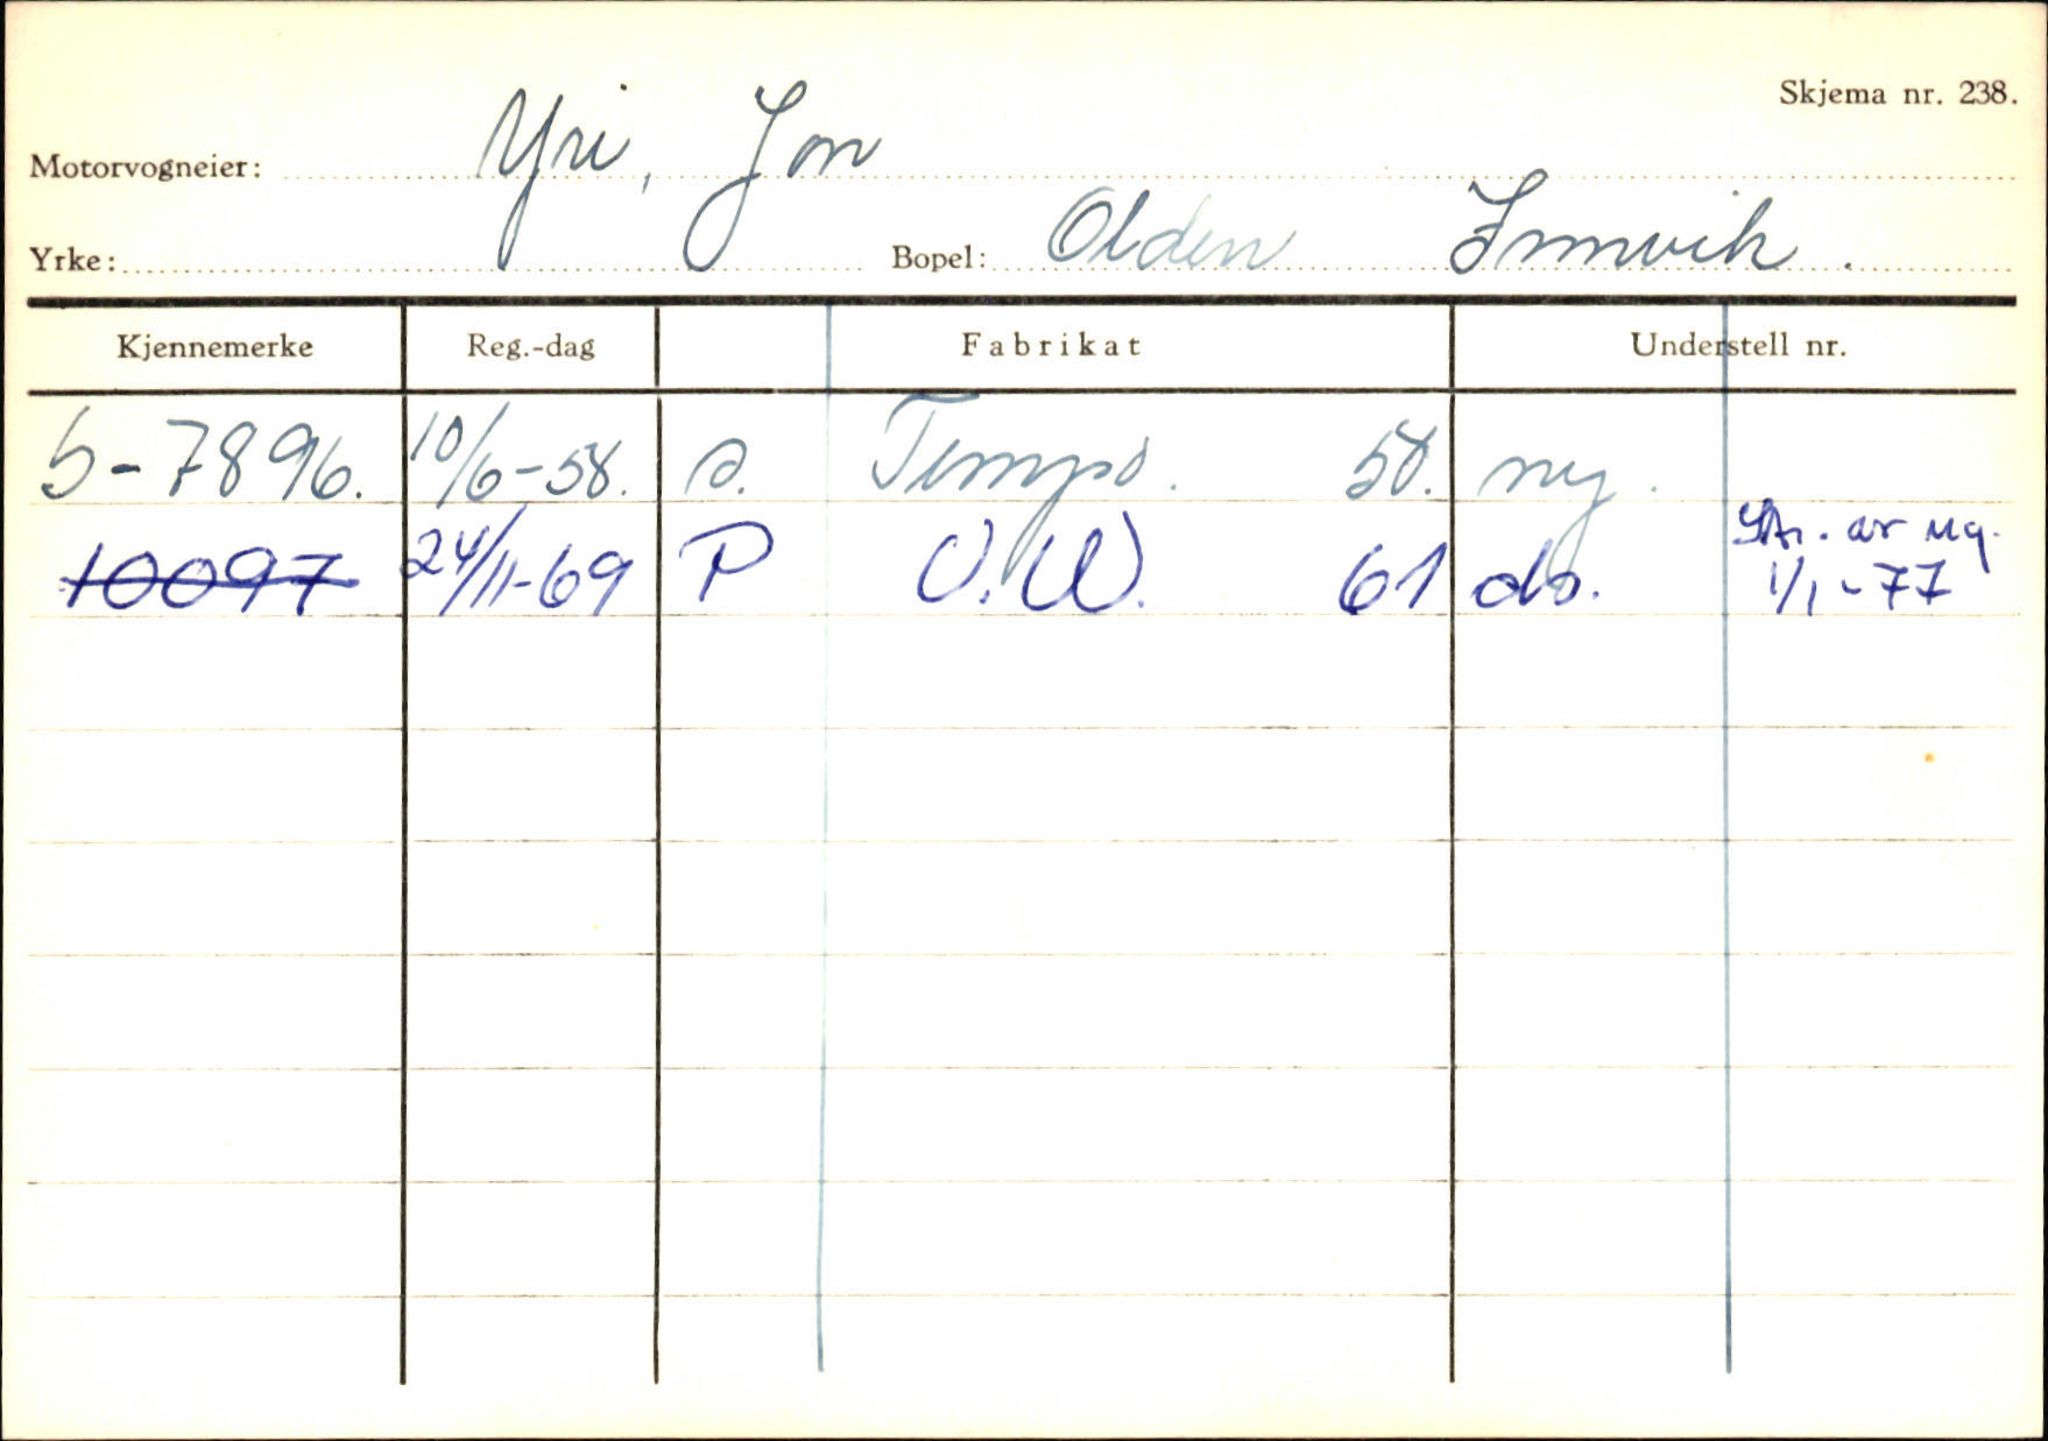 Skjema nr. 238.
Motorvogneier: Yri, Jon
Yrke: Bopel: Olden Innvik.
Kjennemerke Reg.-dag Fabrikat Understell nr.
S-7896. 10/6-58. s. Tempo. 58. ny.
10097 24/11-69 P V.W. 61 do. Str. av reg.
1/1-77